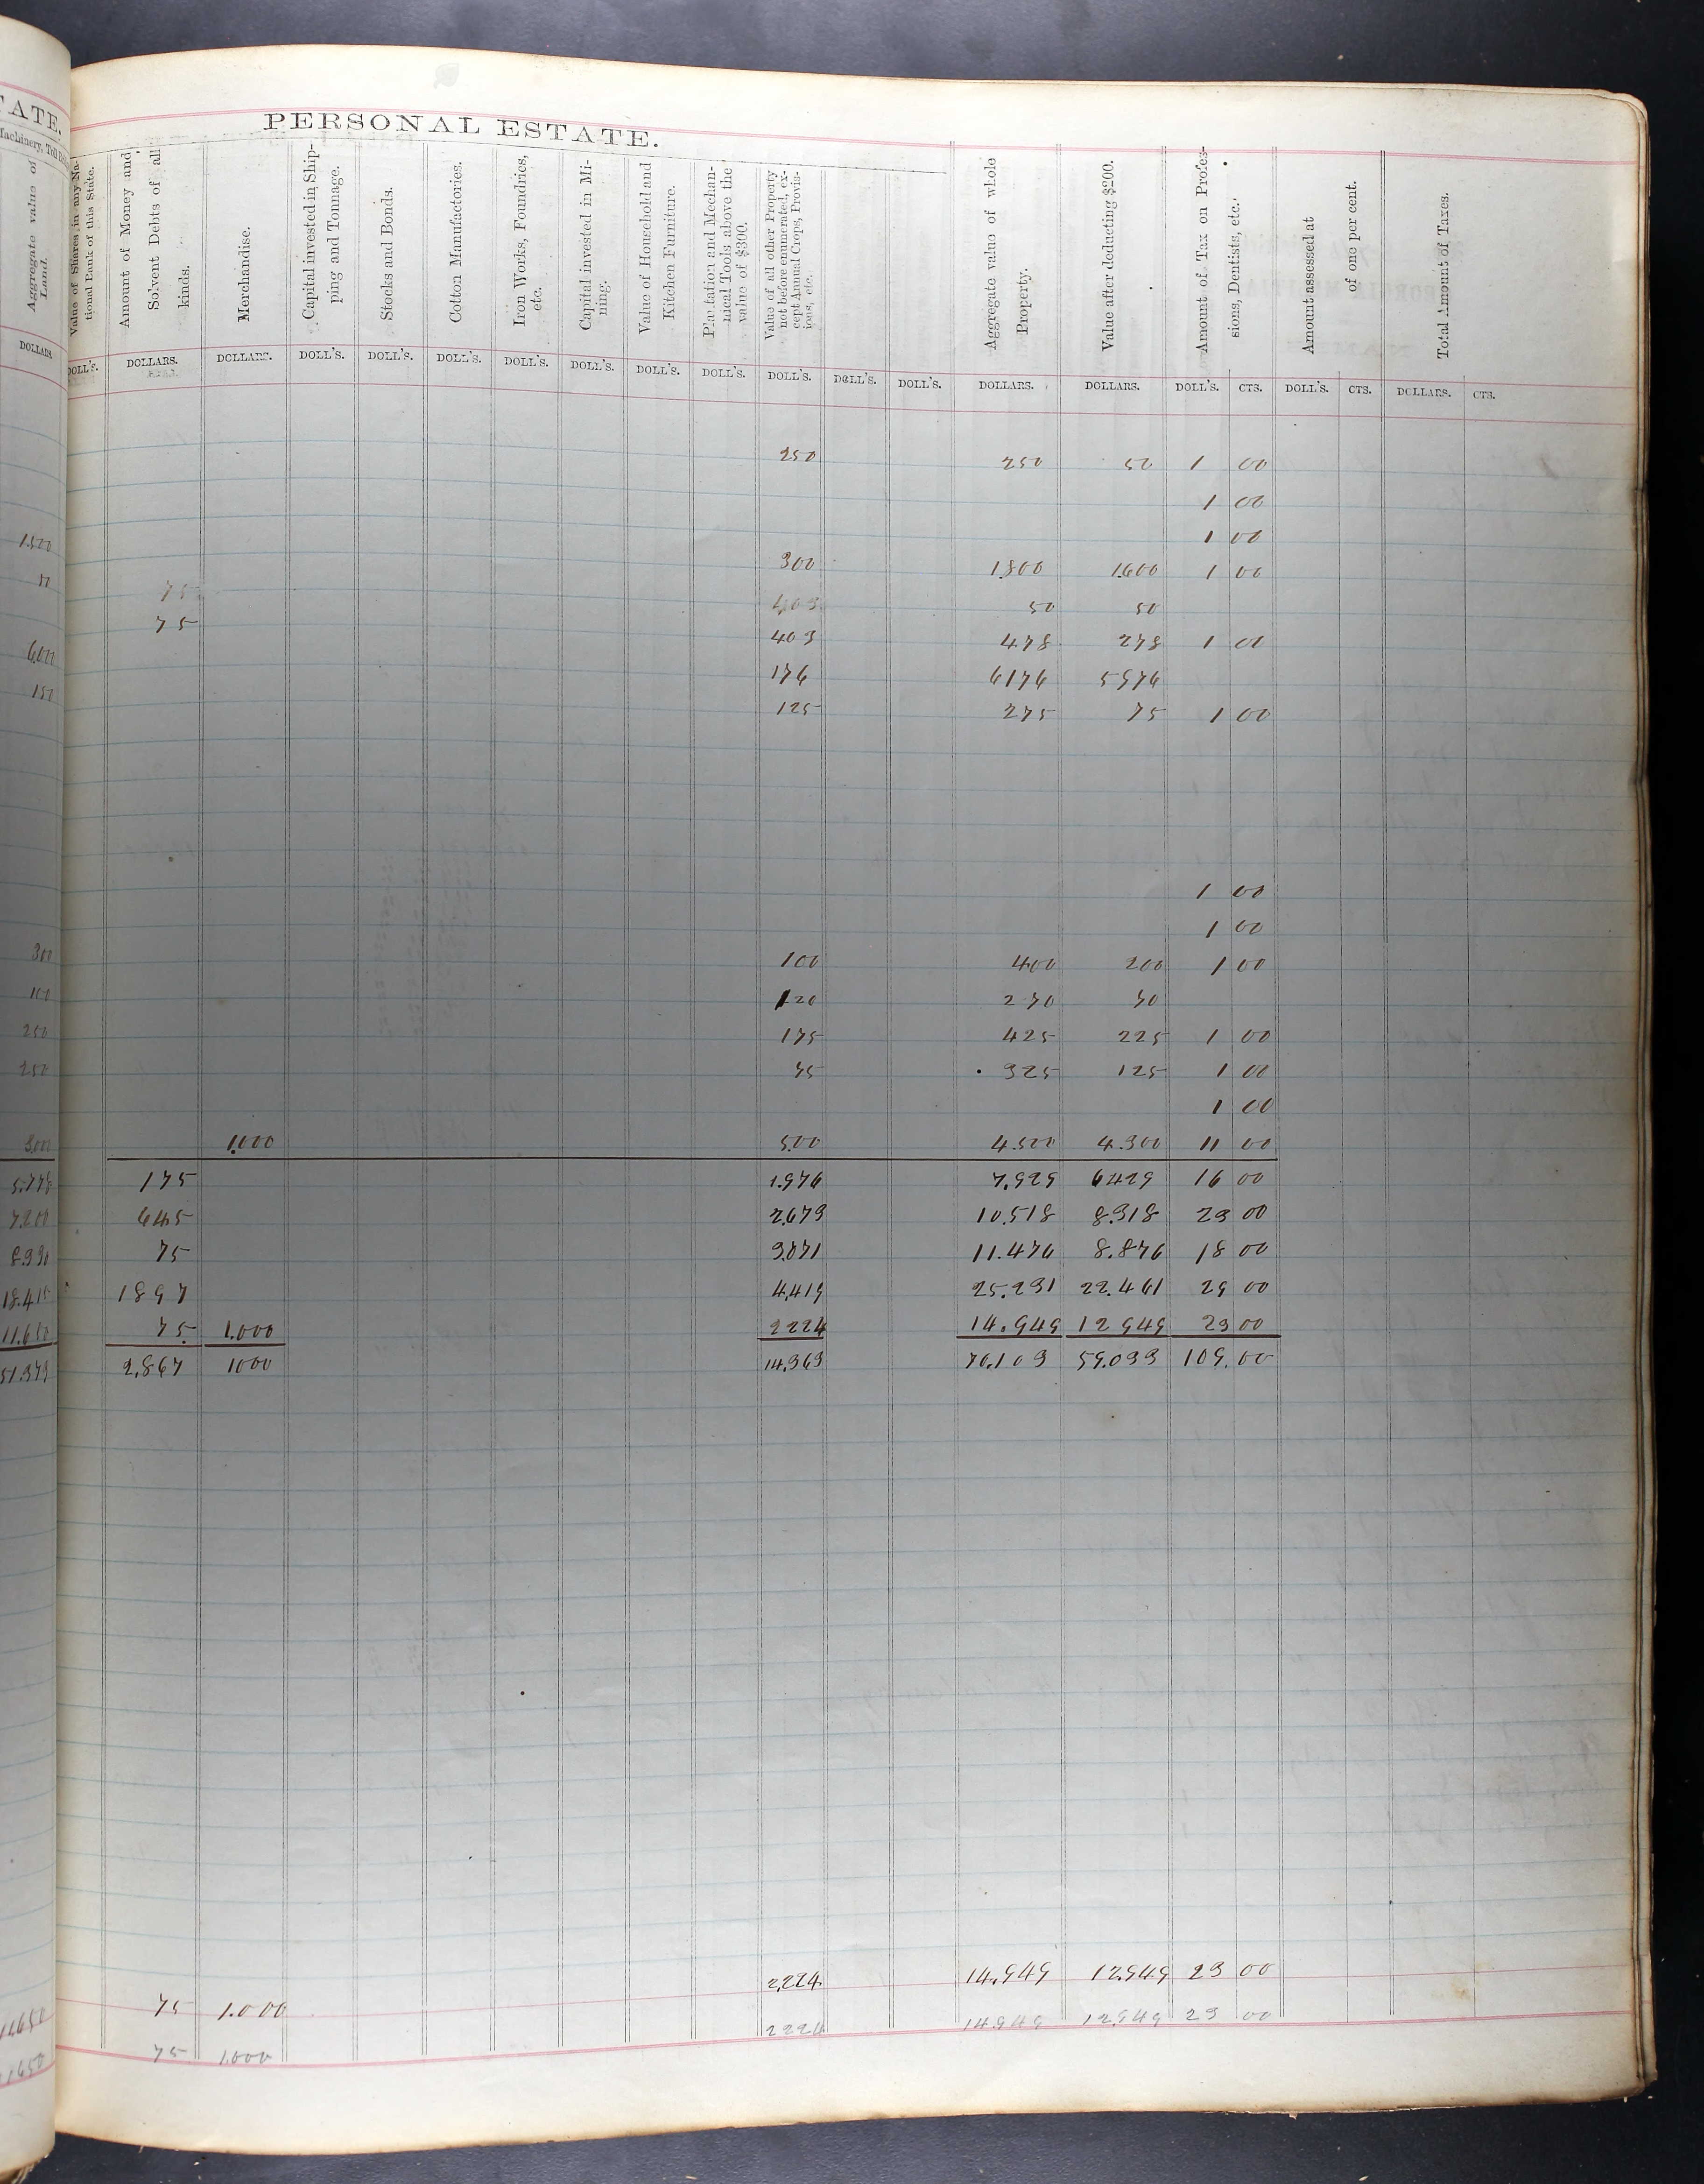 TATE.
PERSONAL ESTATE.
Machinery, Toll
Aggregate value of Land.
Value of Shares in any National Bank of this State.
Amount of Money and Solvent Debts of all kinds.
Merchandise.
Capital invested in Shipping and Tonnage.
Stocks and Bonds.
Cotton Manufactories.
Iron Works, Foundries, etc.
Capital invested in Mining.
Value of Household and Kitchen Furniture.
Plantation and Mechanical Tools above the value of $300.
Value of all other Property not before enumerated, except Annual Crops, Provisions, etc.
Aggregate value of whole Property.
Value after deducting $200.
Amount of Tax on Professions, Dentists, etc.
Amount assessed at of one per cent.
Total Amount of Taxes.
DOLLARS. DOLL'S. DOLLARS. DOLLARS. DOLL'S. DOLL'S. DOLL'S. DOLL'S. DOLL'S. DOLL'S. DOLL'S. DOLL'S. DOLL'S. DOLL'S. DOLLARS. DOLLARS. DOLL'S. CTS. DOLL'S. CTS. DOLLARS. CTS.
250 250 50 1 00
1 00
1500 1 00
300 1800 1600 1 00
75 403 50 50
75 403 478 278 1 00
6000 176 6176 5976
150 125 275 75 1 00
1 00
1 00
300 100 400 200 1 00
100 120 270 70
250 175 425 225 1 00
250 75 325 125 1 00
1 00
3000 1,000 500 4.500 4.300 11 00
5.778 175 1.976 7.929 6429 16 00
7200 645 2,673 10.518 8.318 23 00
8.330 75 3,071 11.476 8.876 18 00
18.415 1897 4,419 25.231 22.461 29 00
11.650 75 1.000 2224 14.949 12949 23 00
51.373 2,867 1000 14,363 70,103 59.033 109.00
2,224 14,949 12,949 23 00
11650 75 1.000 2224 14949 12,949 23 00
1650 75 1.000